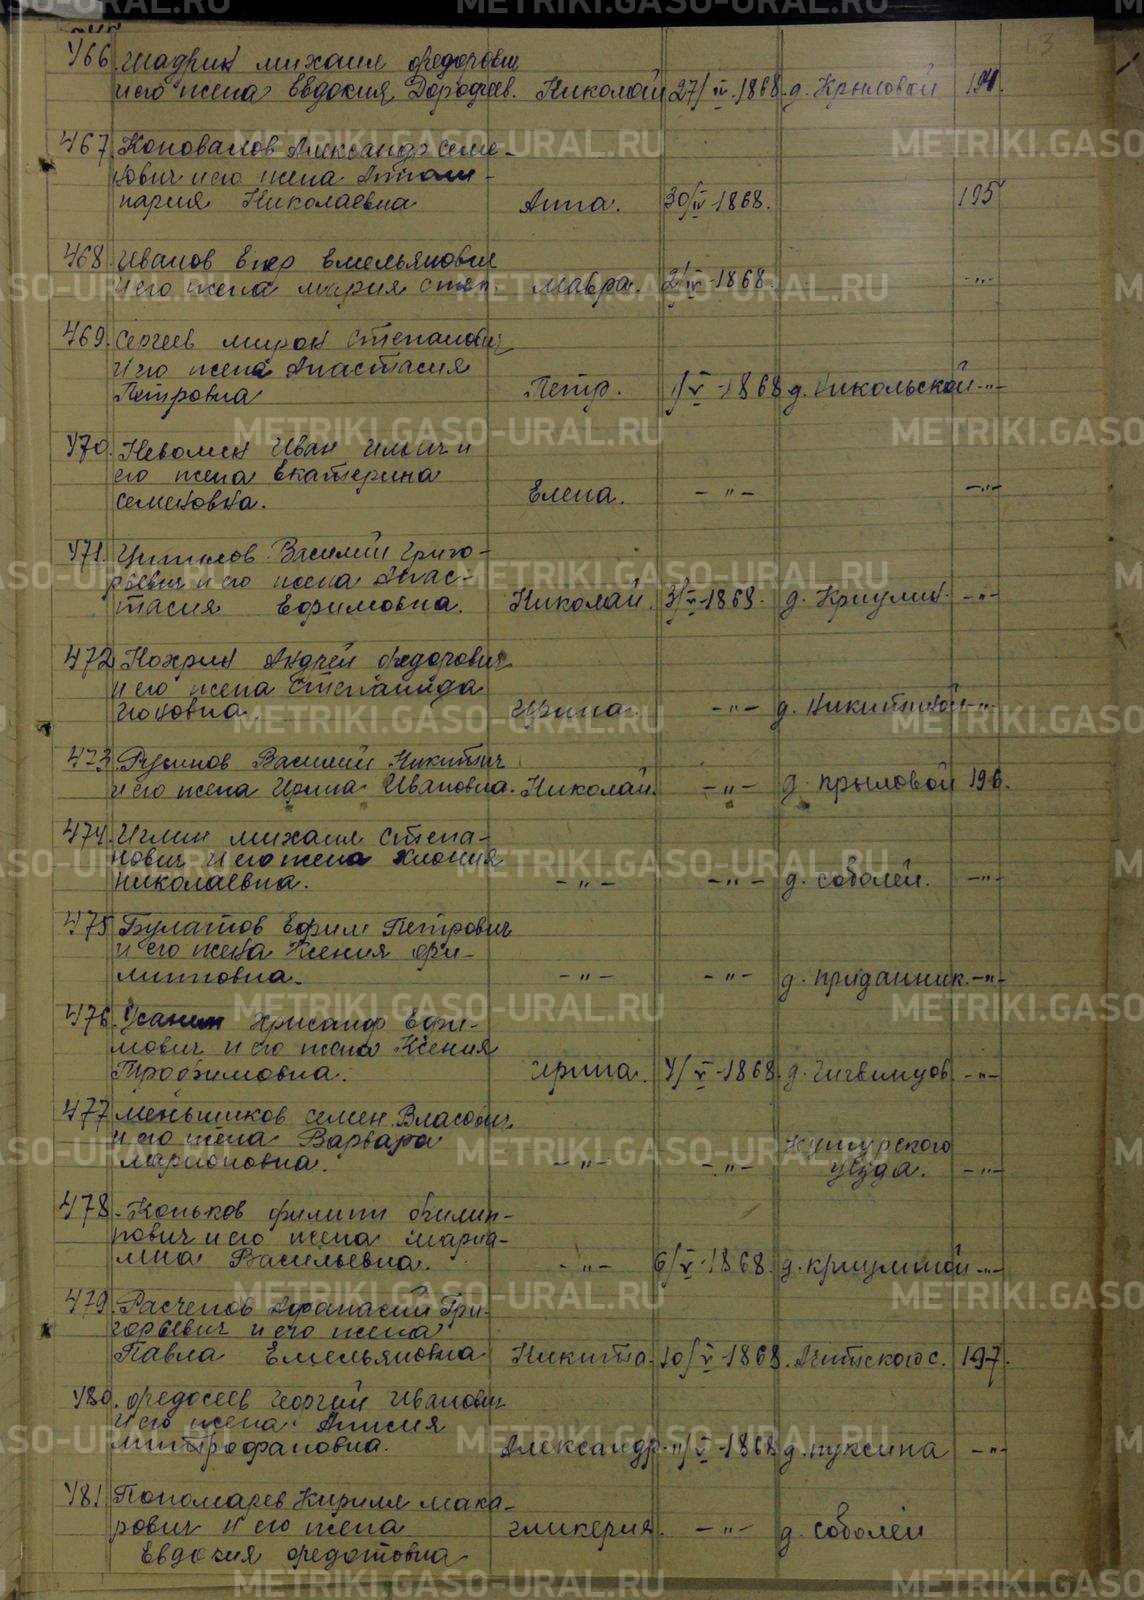 466. Шадрин Михаил Федорович
и его жена Евдокия Дорофеев. Николай 27/IV-1868. д. Крыловой 194.
467. Коновалов Александр Семе-
нович и его жена Аполи-
нария Николаевна Анна. 30/IV-1868. 195
468. Иванов Егор Емельянович
и его жена Мария Степ. Мавра. 2/IV-1868. -"-
469. Сергеев Мирон Степанович
и его жена Анастасия
Петровна Петр. 1/V-1868 д. Никольской -"-
470. Неволин Иван Ильич и
его жена Екатерина
Семеновна. Елена. -"- -"-
471. Василий Григо-
рьевич и его жена Анас-
тасия Ефимовна. Николай. 3/V-1868. д. Криулин. -"-
472. Кохрин Андрей Федорович
и его жена Степанида
Ионовна. Ирина. -"- д. Никитиной -"-
473. Русинов Василий Никитич
и его жена Ирина Ивановна. Николай. -"- д. Крыловой 196.
474. Иглин Михаил Степа-
нович и его жена Хиония
Николаевна. -"- -"- д. Соболей. -"-
475. Булатов Ефим Петрович
и его жена Ксения Фи-
липповна. -"- -"- д. Приданник. -"-
476. Усанин Хрисанф Ефи-
мович и его жена Ксения
Трофимовна. Ирина. 4/V-1868. д. Чигвинцов. -"-
477. Меньшиков Семен Власович
и его жена Варвара
Марионовна. -"- -"- Кунгурского уезда. -"-
478. Коньков Филипп Филип-
пович и его жена Мариа-
мна Васильевна. -"- 6/V-1868. д. Криулиной -"-
479. Расчепов Афанасий Гри-
горьевич и его жена
Павла Емельяновна Никита. 10/V-1868. Ачитского с. 197.
480. Федосеев Георгий Иванович
и его жена Анисия
Митрофановна. Александр. 11/V-1868 д. Луксина -"-
481. Пономарев Кирилл Мака-
рович и его жена Гликерия. -"- д. Соболей
Евдокия Федотовна
METRIKI.GASO-URAL.RU